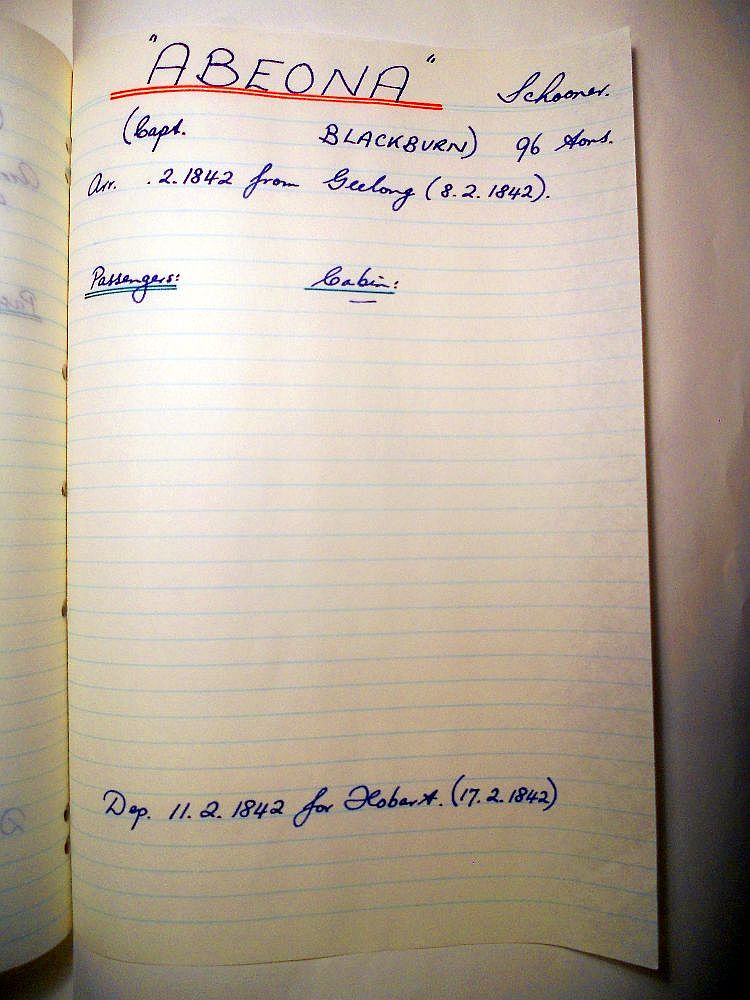 "ABEONA" Schooner.
(Capt. BLACKBURN) 96 tons.
Arr. .2.1842 from Geelong (8.2.1842).
Passengers: Cabin:
Dep. 11.2.1842 for Hobart. (17.2.1842)